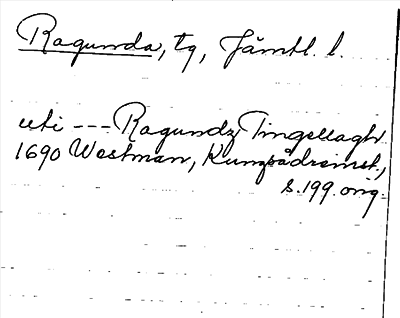 Ragunda, tg, Jämtl. l.
uti --- Ragundz Tingellagh
1690 Westman, Kungsådreinst.,
s. 199. orig.